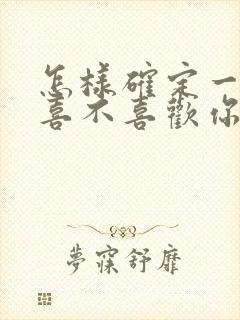 怎樣確定一
喜不喜歡你
夢寐舒靡